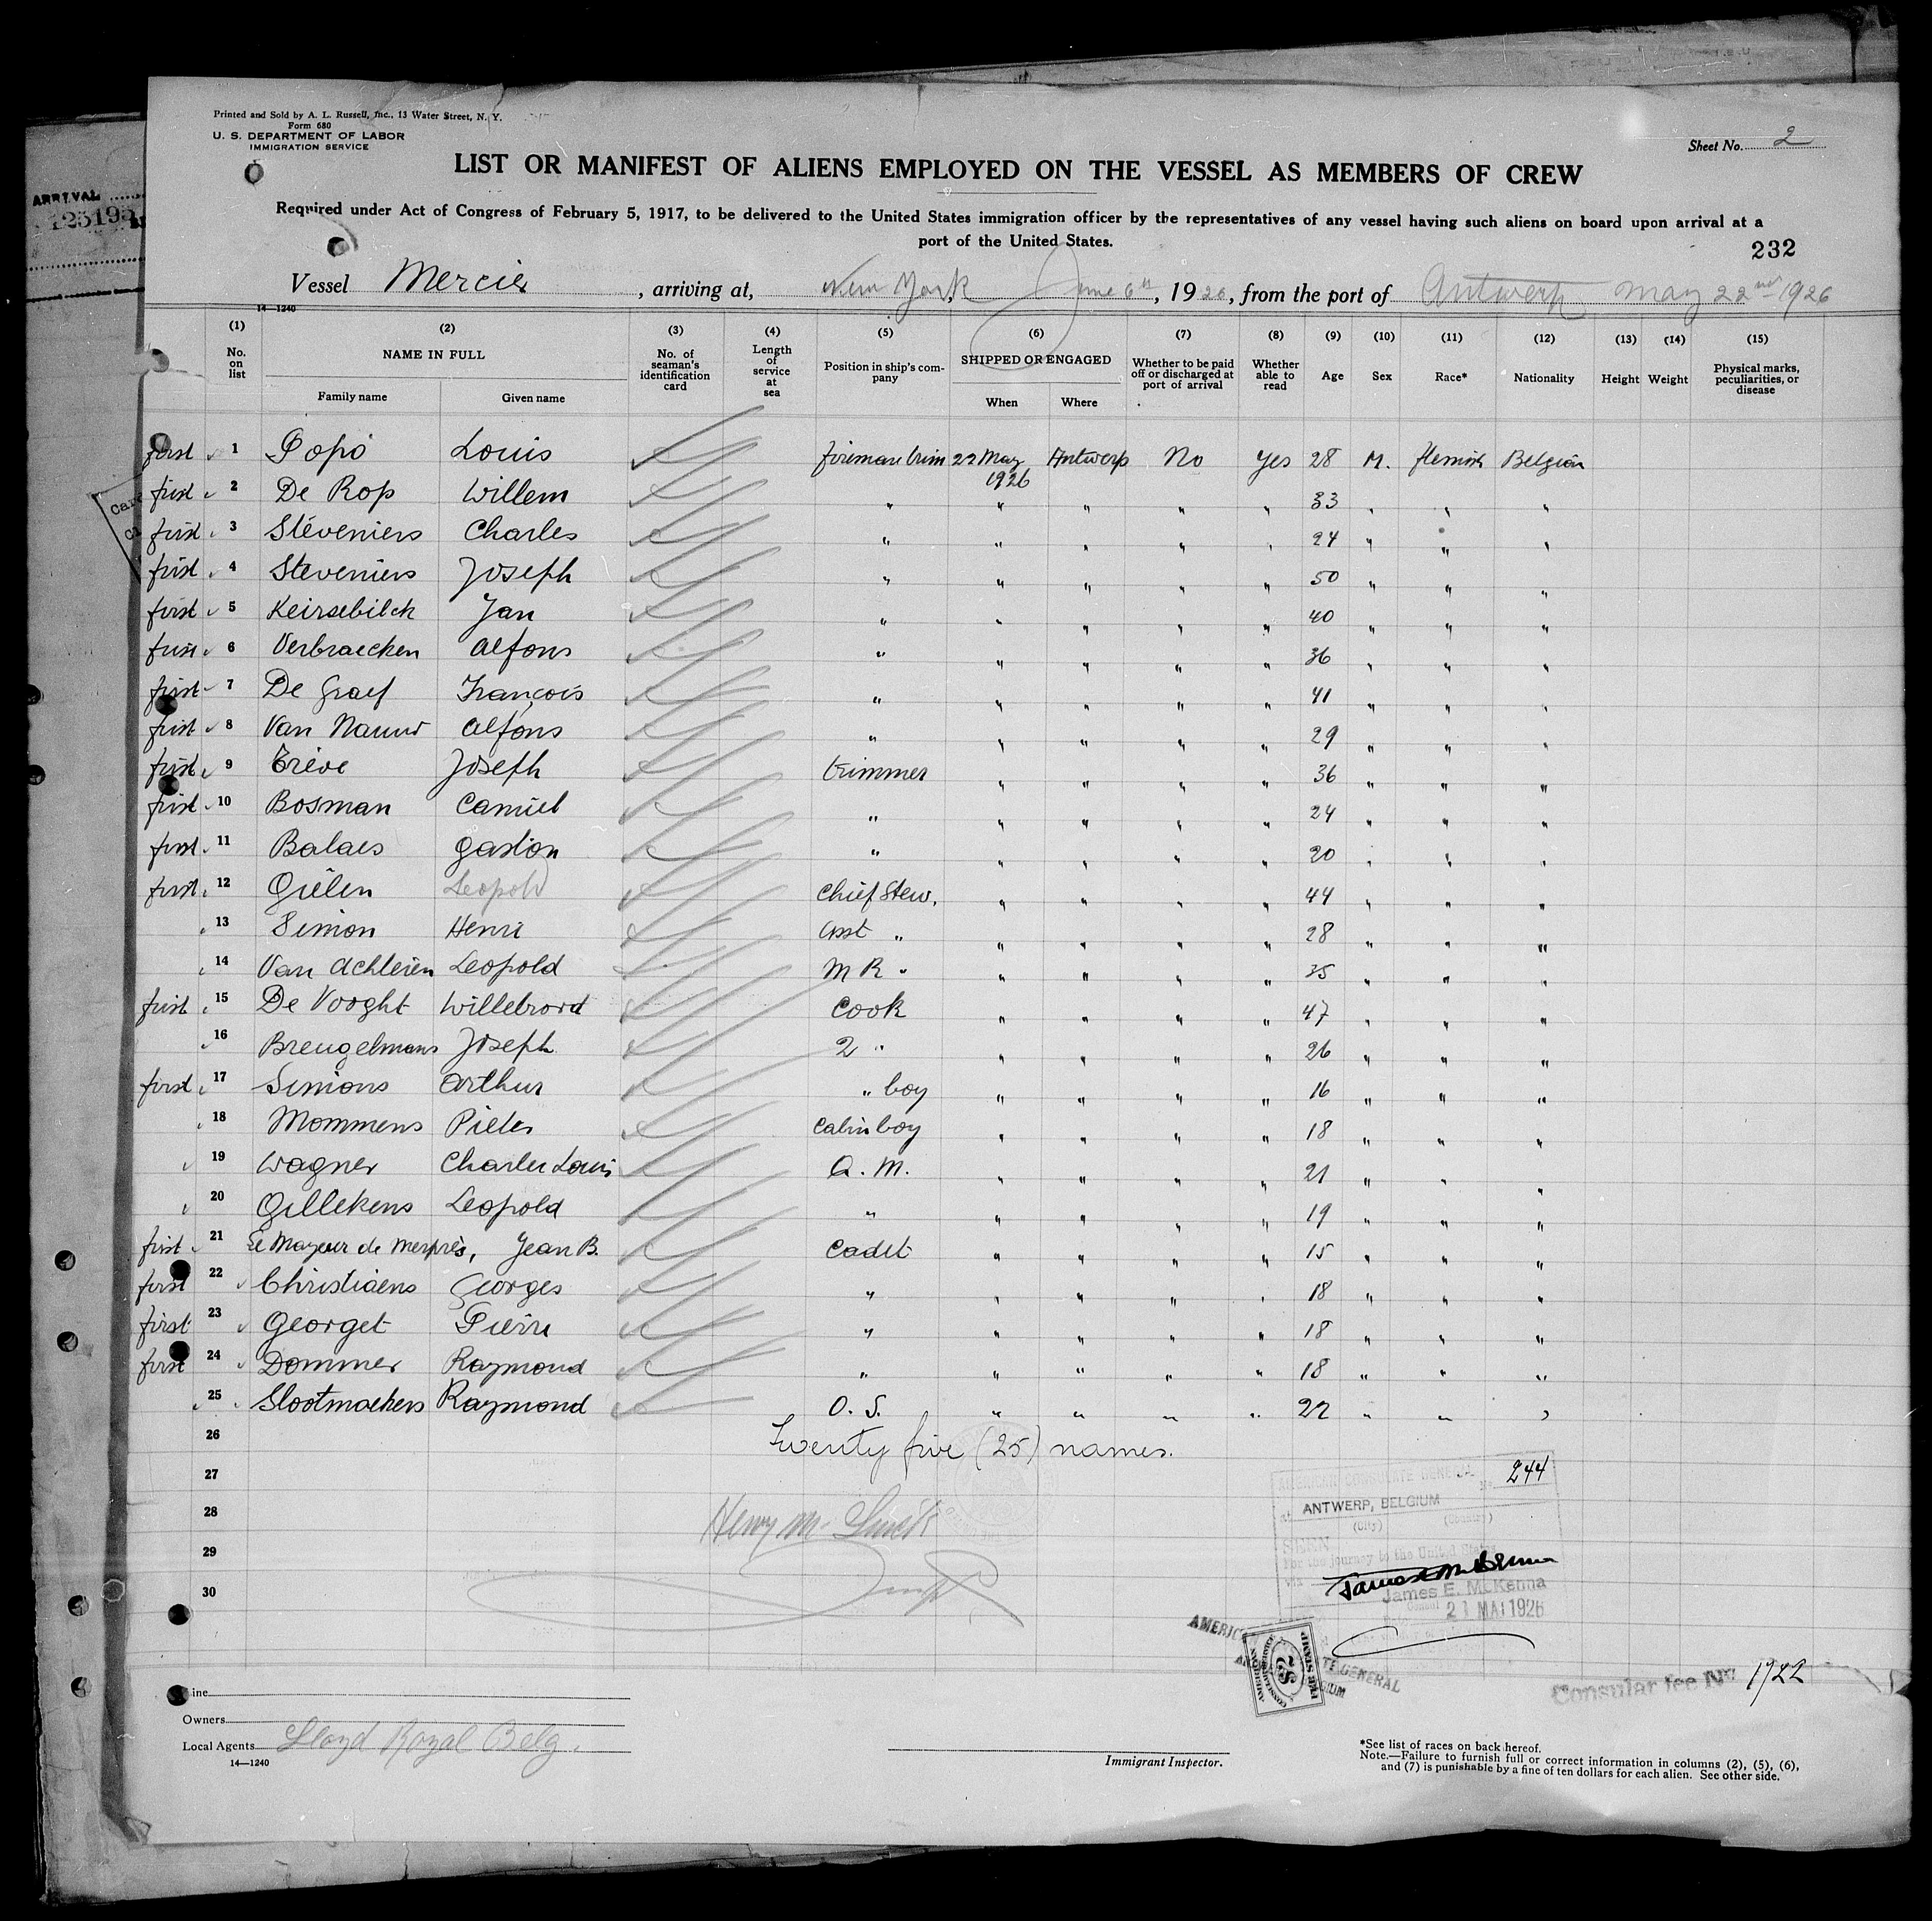 Printed and Sold by A. L. Russell, Inc., 13 Water Street, N. Y.
Form 680
U. S. DEPARTMENT OF LABOR
IMMIGRATION SERVICE
Sheet No. 2
LIST OR MANIFEST OF ALIENS EMPLOYED ON THE VESSEL AS MEMBERS OF CREW
ARRIVAL
Required under Act of Congress of February 5, 1917, to be delivered to the United States immigration officer by the representatives of any vessel having such aliens on board upon arrival at a
port of the United States.
232
Vessel Mercier, arriving at, New York, June 6th, 1926, from the port of Antwerp May 22nd 1926
14—1240
(1) (2) (3) (4) (5) (6) (7) (8) (9) (10) (11) (12) (13) (14) (15)
No. on list NAME IN FULL Family name Given name No. of seaman's identification card Length of service at sea Position in ship's company SHIPPED OR ENGAGED When Where Whether to be paid off or discharged at port of arrival Whether able to read Age Sex Race* Nationality Height Weight Physical marks, peculiarities, or disease
first 1 Popo Louis fireman trim 22 May 1926 Antwerp No Yes 28 M. flemish Belgian
first 2 De Rop Willem " " " " " 33 " " "
first 3 Steveniers Charles " " " " " 24 " " "
first 4 Steveniers Joseph " " " " " 50 " " "
first 5 Keirsebilck Jan " " " " " 40 " " "
first 6 Verbraecken Alfons " " " " " 36 " " "
first 7 De Graef François " " " " " 41 " " "
first 8 Van Alfons " " " " " 29 " " "
first 9 Trève Joseph trimmer " " " " 36 " " "
first 10 Bosman Camiel " " " " " 24 " " "
first 11 Balaes Gaston " " " " " 20 " " "
first 12 Gielen Leopold Chief Stew. " " " " 44 " " "
13 Simon Henri Asst " " " " " 28 " " "
14 Van Leopold M R " " " " " 35 " " "
first 15 De Vooght Willebrord Cook " " " " 47 " " "
16 Breugelmans Joseph 2 " " " " " 26 " " "
first 17 Simons Arthur " boy " " " " 16 " " "
18 Mommens Pieter Cabin boy " " " " 18 " " "
19 Wagner Charles Louis Q. M. " " " " 21 " " "
20 Gillekens Leopold " " " " " 19 " " "
first 21 Le Mayeur de Merprès, Jean B. Cadet " " " " 15 " " "
first 22 Christiaens Georges " " " " " 18 " " "
first 23 Georget Pierre " " " " " 18 " " "
first 24 Dommer Raymond " " " " " 18 " " "
25 Slootmaekers Raymond O. S. " " " " 22 " " "
26 Twenty five (25) names.
27
28
29
30
AMERICAN CONSULATE GENERAL No. 244
at ANTWERP, BELGIUM
(City) (Country)
SEEN
For the journey to the United States
James E. McKenna
Consul
21 MAI 1926
Consular fee No. 1922
Line
Owners
Local Agents Lloyd Royal Belg.
14—1240
Immigrant Inspector.
*See list of races on back hereof.
Note.—Failure to furnish full or correct information in columns (2), (5), (6),
and (7) is punishable by a fine of ten dollars for each alien. See other side.